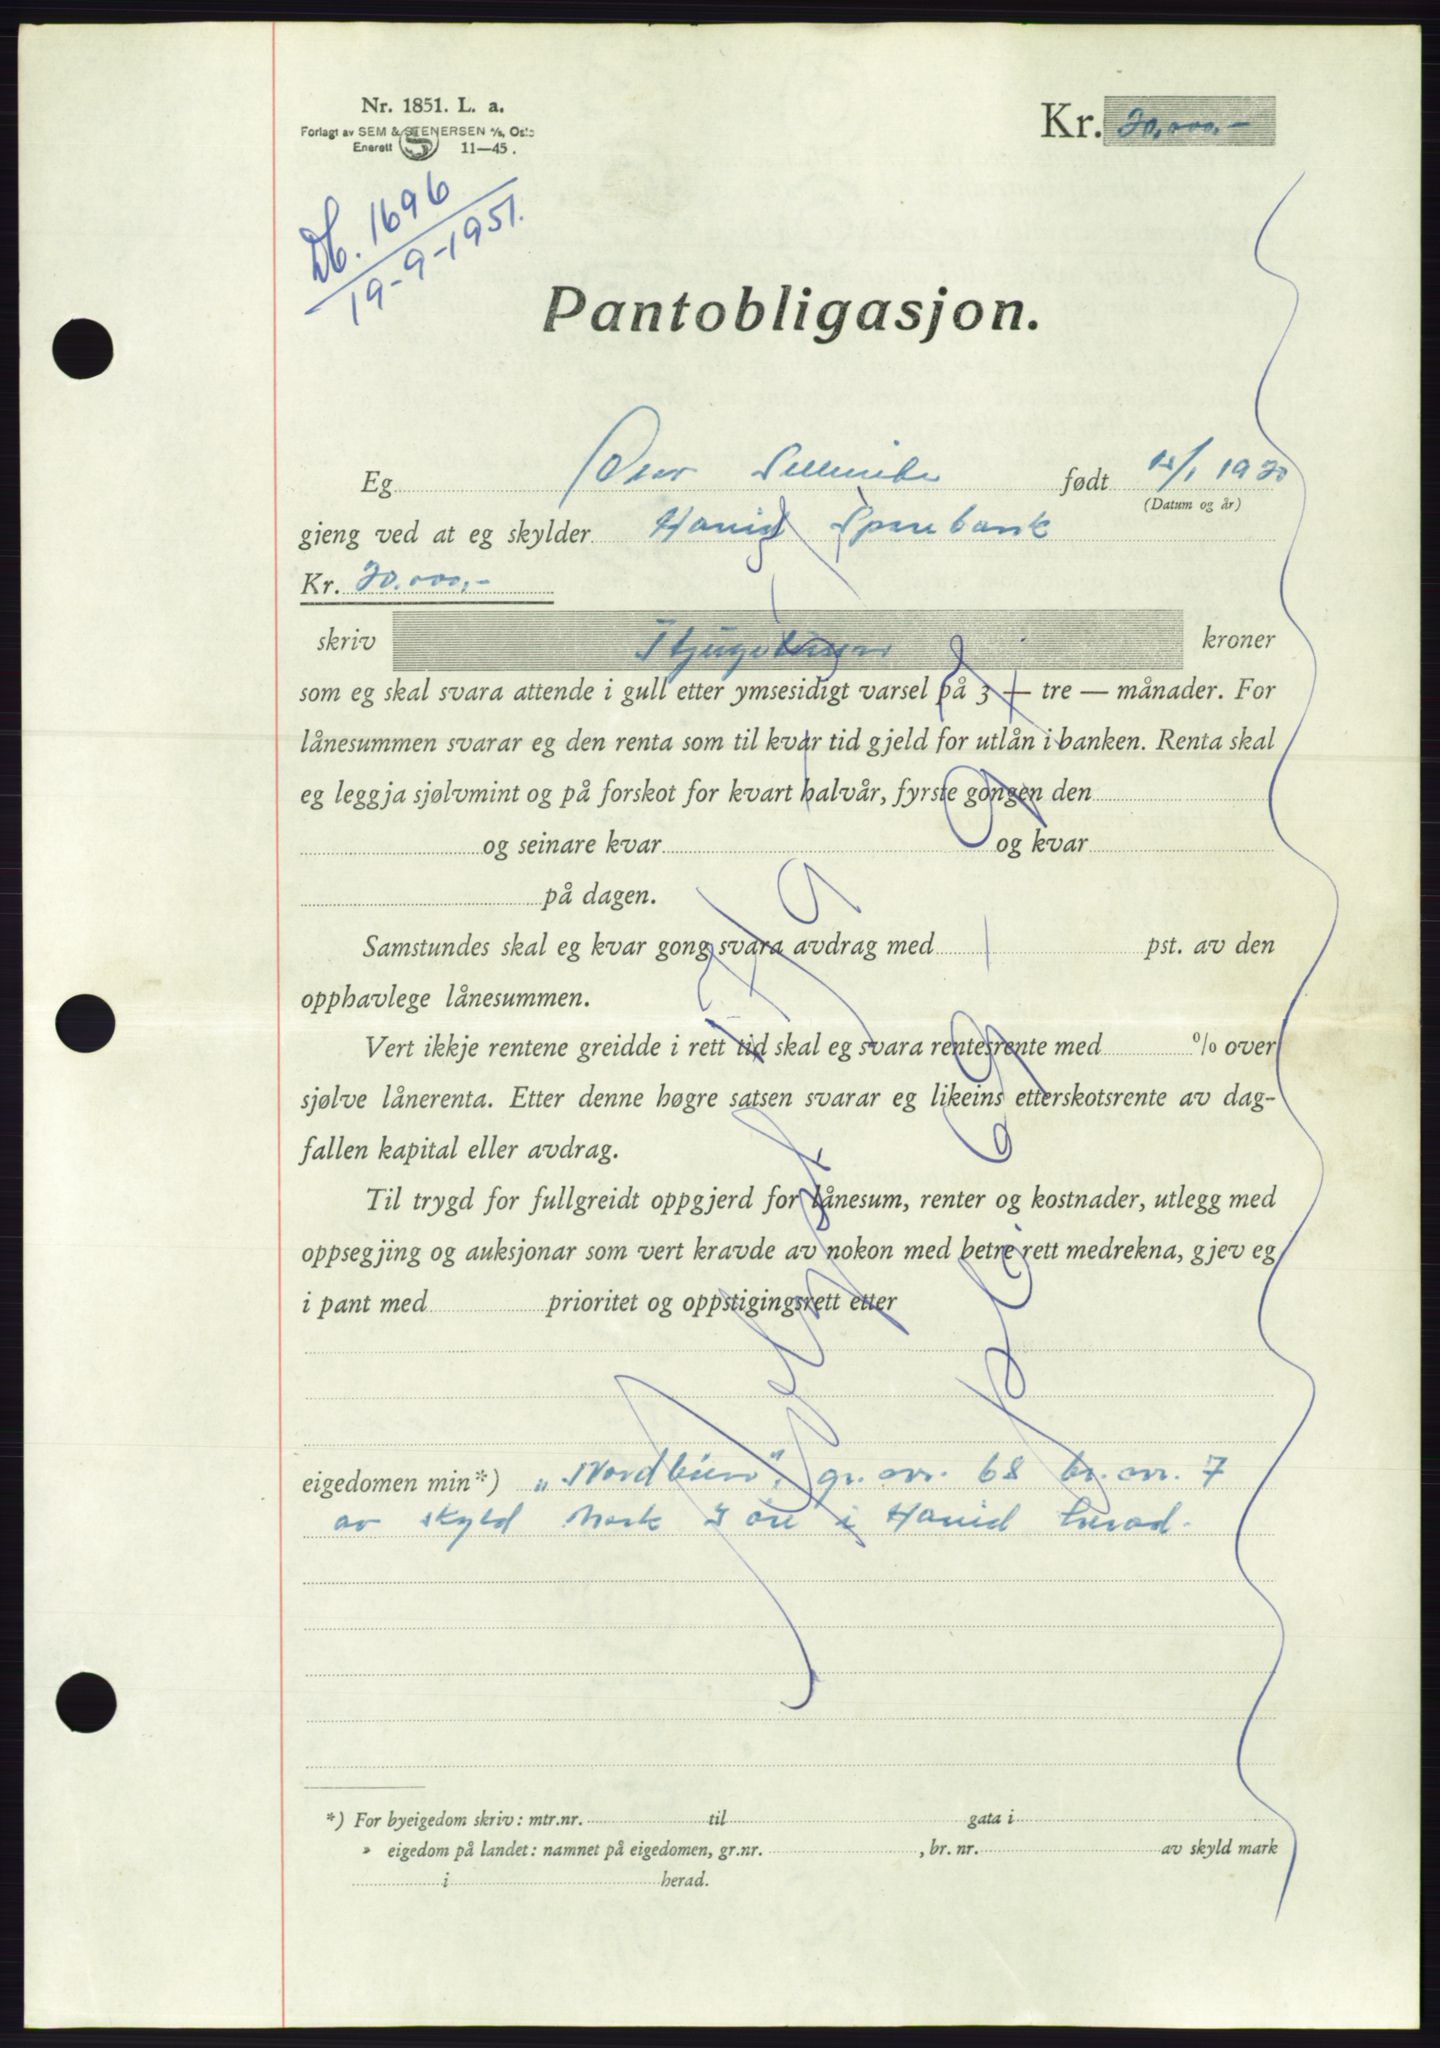 Nr. 1851. L. a.
Forlagt av SEM & STENERSEN A/S, Oslo
Enerett S 11—45.
Kr. 20.000,-
Db. 1696
19-9-1951.
Pantobligasjon.
Eg født 1920
(Datum og år)
gjeng ved at eg skylder Hornid Sparebank
Kr. 20.000,-
skriv Tjugetusen kroner
som eg skal svara attende i gull etter ymsesidigt varsel på 3 — tre — månader. For
lånesummen svarar eg den renta som til kvar tid gjeld for utlån i banken. Renta skal
eg leggja sjølvmint og på forskot for kvart halvår, fyrste gongen den
og seinare kvar og kvar
på dagen.
Samstundes skal eg kvar gong svara avdrag med pst. av den
opphavlege lånesummen.
Vert ikkje rentene greidde i rett tid skal eg svara rentesrente med % over
sjølve lånerenta. Etter denne høgre satsen svarar eg likeins etterskotsrente av dag-
fallen kapital eller avdrag.
Til trygd for fullgreidt oppgjerd for lånesum, renter og kostnader, utlegg med
oppsegjing og auksjonar som vert kravde av nokon med betre rett medrekna, gjev eg
i pant med prioritet og oppstigingsrett etter
eigedomen min*) gr. nr. 68 br. nr. 7
av skyld mark 3 øre i Hornid herad.
*) For byeigedom skriv: mtr.nr. til gata i
» eigedom på landet: namnet på eigedomen, gr.nr. , br. nr. av skyld mark
i herad.